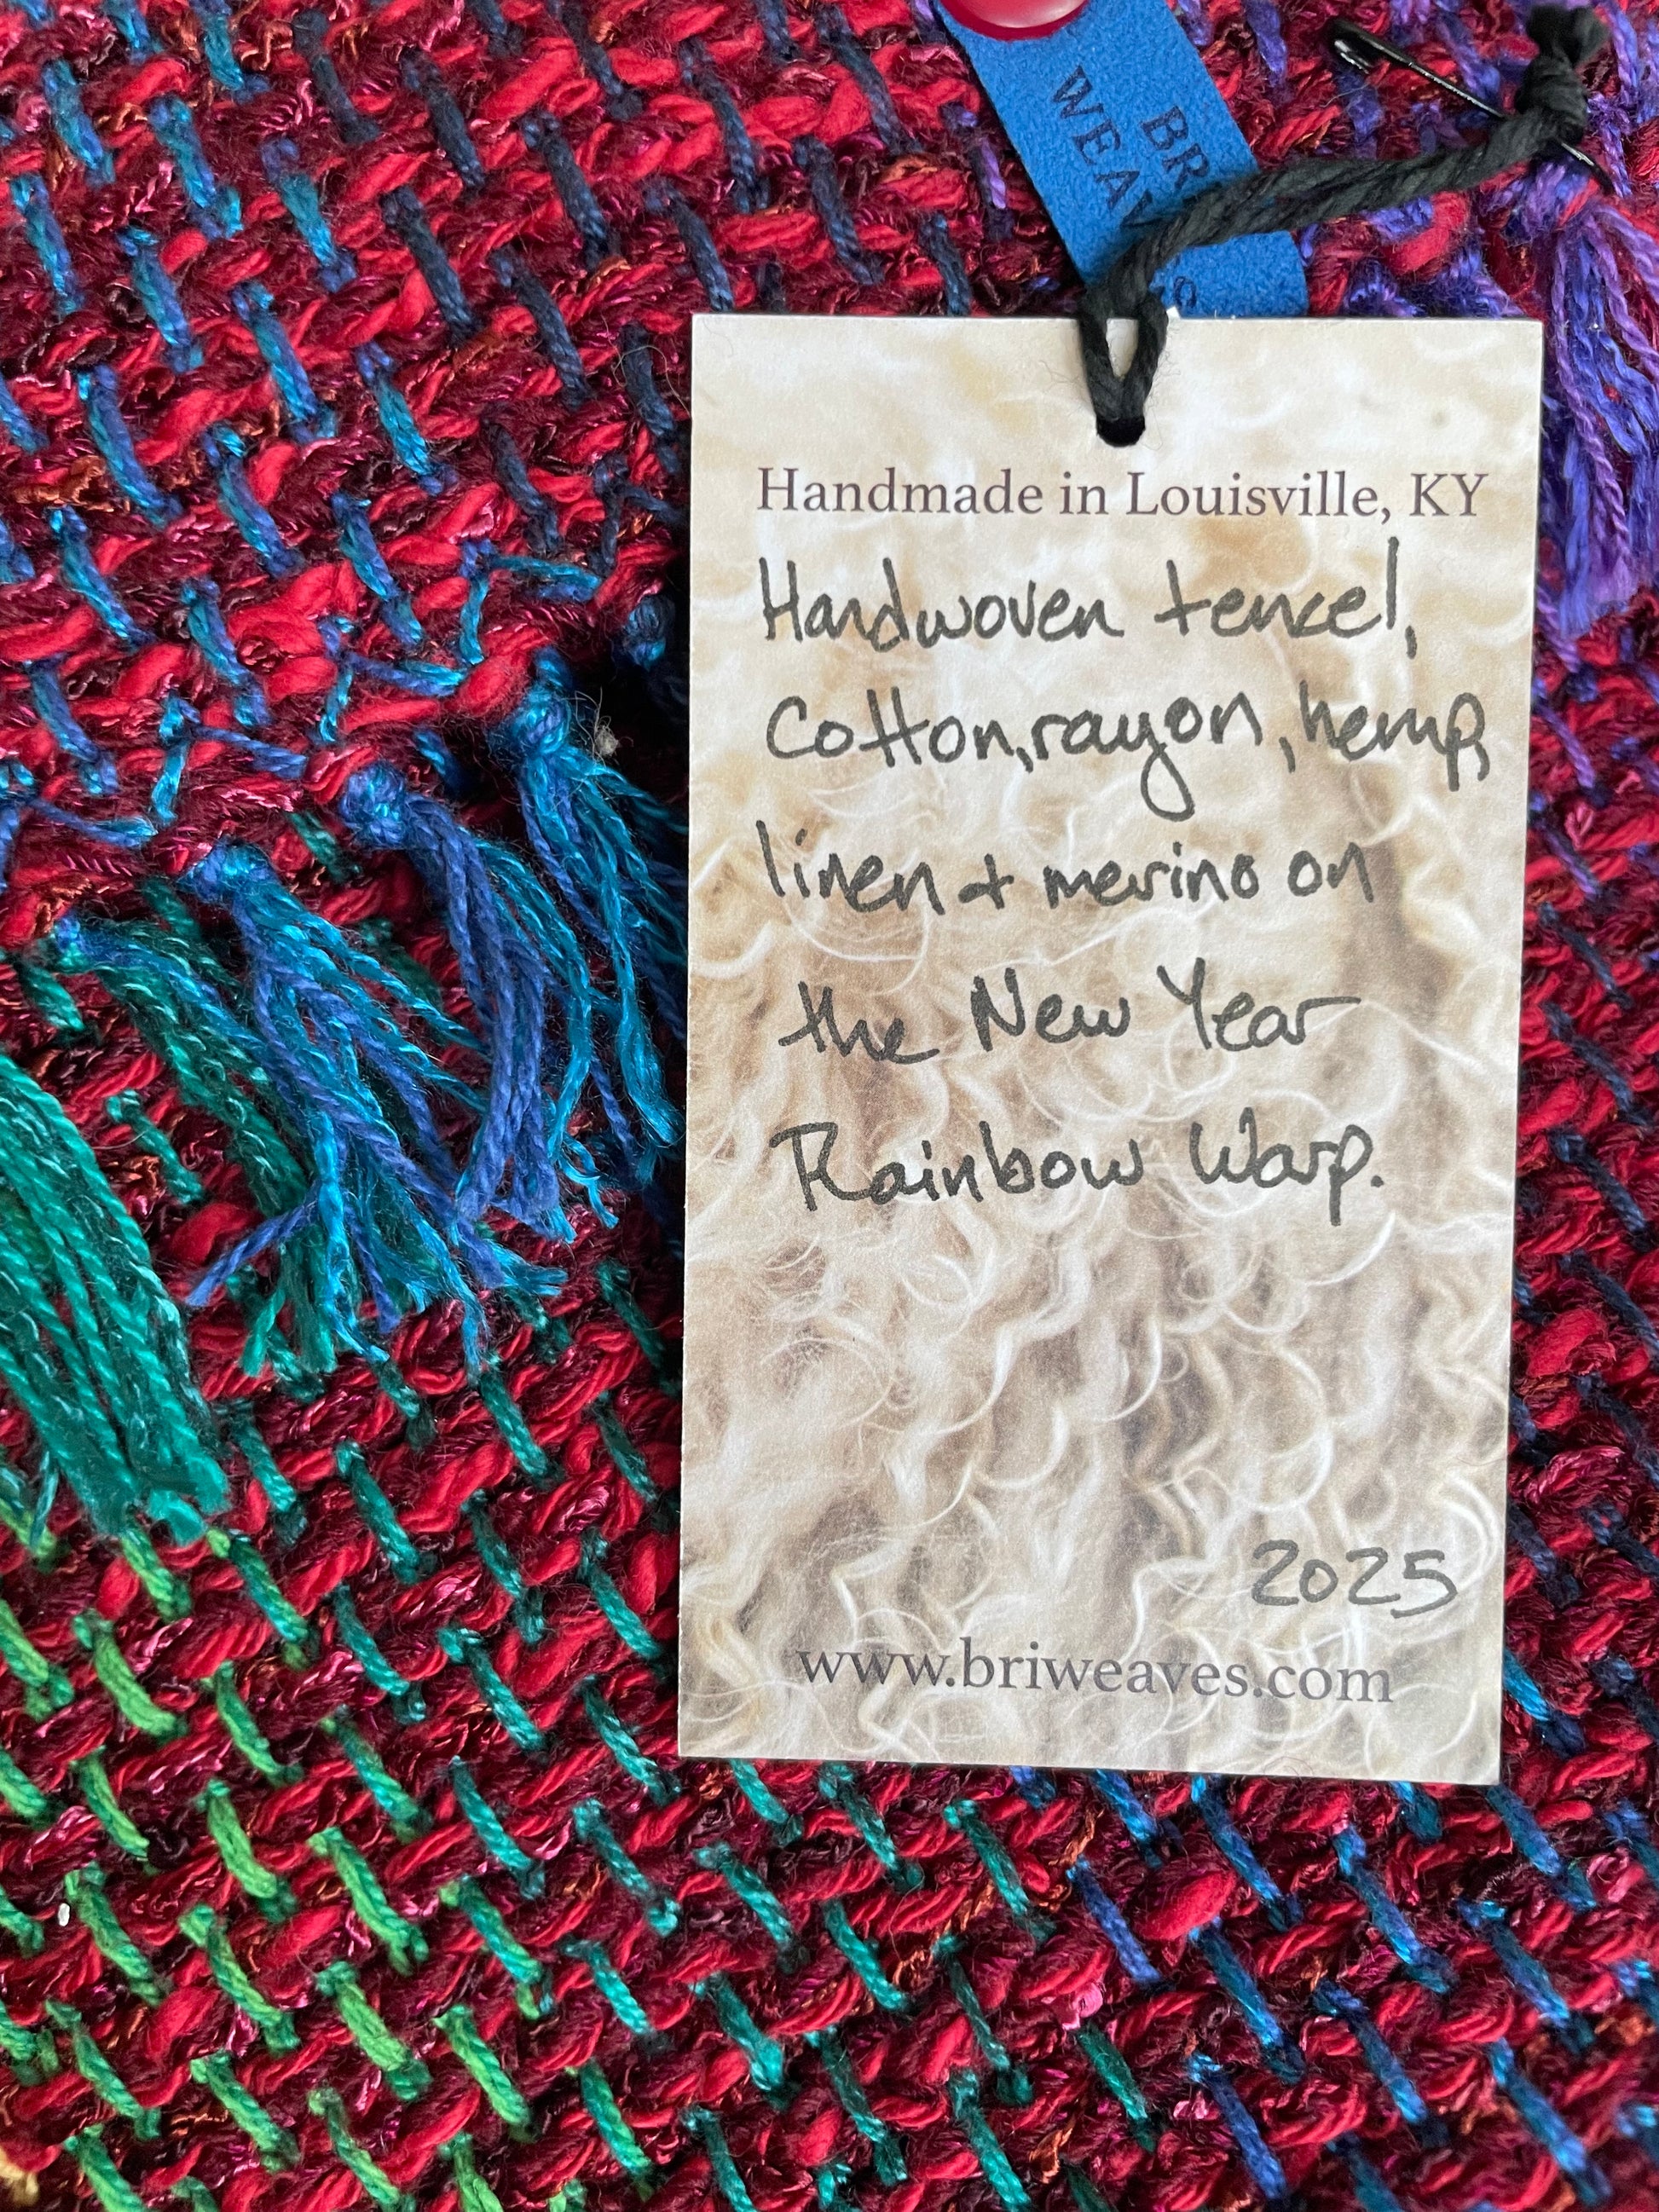 WEA
Handmade in Louisville, KY
Handwoven tencel,
Cotton, rayon, hemp,
linen + merino on
the New Year
Rainbow Warp.
2025
www.briweaves.com